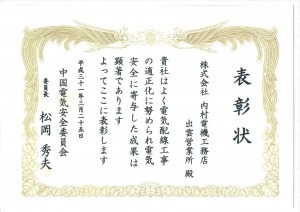 表彰状
株式会社 内村電機工務店
出雲営業所 殿
貴社はよく電気配線工事
の適正化に努められ電気
安全に寄与した成果は
顕著であります
よってここに表彰します
平成二十一年三月二十五日
中国電気安全委員会
委員長 松岡秀夫